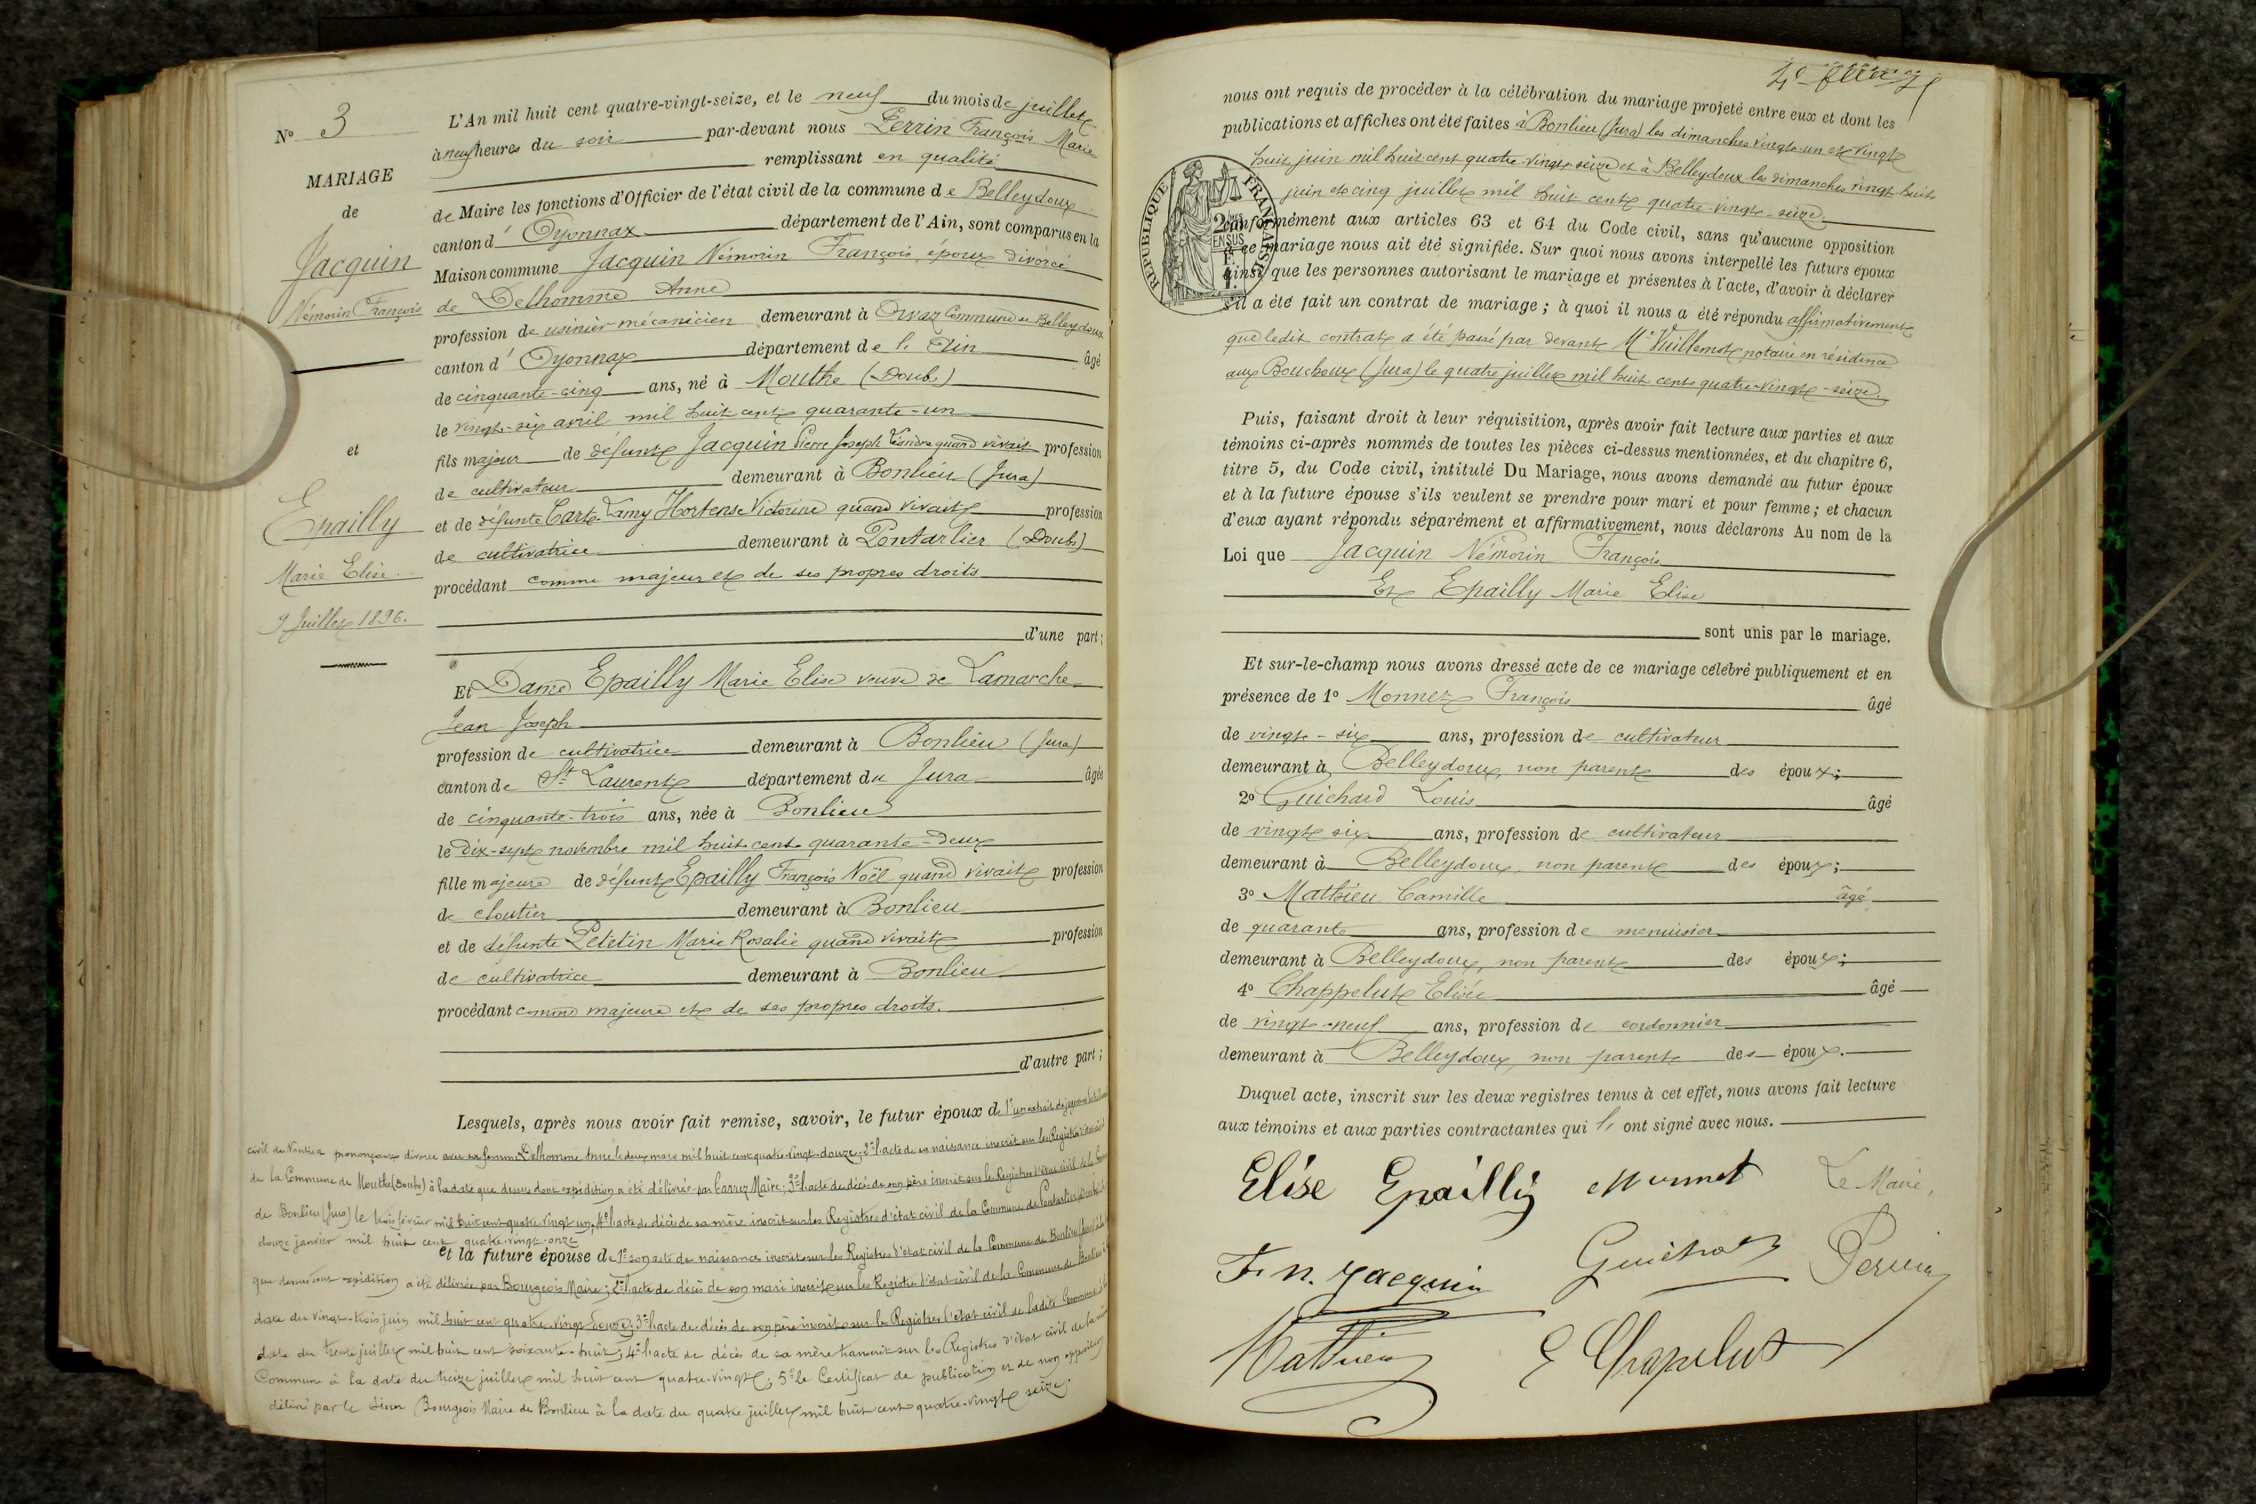 N° 3
MARIAGE
de
Jacquin
Némorin François
et
Epailly
Marie Elise
9 Juillet 1896.
L'An mil huit cent quatre-vingt-seize, et le neuf du mois de juillet
à neuf heures du soir par-devant nous Perrin François Marie
remplissant en qualité
de Maire les fonctions d'Officier de l'état civil de la commune de Belleydoux
canton d' Oyonnax département de l'Ain, sont comparus en la
Maison commune Jacquin Némorin François, époux divorcé
de Delhomme Anne
profession de usinier mécanicien demeurant à Orvaz Commune de Belleydoux
canton d' Oyonnax département de l'Ain âgé
de cinquante-cinq ans, né à Mouthe (Doubs)
le vingt-six avril mil huit cent quarante-un
fils majeur de défunt Jacquin Pierre Joseph quand vivait profession
de cultivateur demeurant à Bonlieu (Jura)
et de défunte Carte-Lamy Hortense Victorine quand vivait profession
de cultivatrice demeurant à Pontarlier (Doubs)
procédant comme majeur et de ses propres droits
d'une part;
Et Dame Epailly Marie Elise veuve de Lamarche
Jean Joseph
profession de cultivatrice demeurant à Bonlieu (Jura)
canton de St Laurent département du Jura âgée
de cinquante-trois ans, née à Bonlieu
le dix-sept novembre mil huit cent quarante-deux
fille majeure de défunt Epailly François Noël quand vivait profession
de cloutier demeurant à Bonlieu
et de défunte Petetin Marie Rosalie quand vivait profession
de cultivatrice demeurant à Bonlieu
procédant comme majeure et de ses propres droits.
d'autre part;
Lesquels, après nous avoir fait remise, savoir, le futur époux de 1° un extrait de jugement
civil de Nantua prononçant divorce avec sa femme Delhomme Anne le deux mars mil huit cent quatre-vingt-douze; 2° l'acte de sa naissance inscrit sur les Registres d'état civil
de la Commune de Mouthe (Doubs) à la date que dessus dont expédition a été délivrée par Carrez Maire; 3° l'acte de décès de son père inscrit sur les Registres d'état civil de la Commune
de Bonlieu (Jura) le trois février mil huit cent quatre vingt un; 4° l'acte de décès de sa mère inscrit sur les Registres d'état civil de la Commune de Pontarlier
douze janvier mil huit cent quatre-vingt-onze
et la future épouse de 1° son acte de naissance inscrit sur les Registres d'état civil de la Commune de Bonlieu (Jura) à la
que dessus dont expédition a été délivrée par Bourgeois Maire; 2° l'acte de décès de son mari inscrit sur les Registres d'état civil de la Commune de Bonlieu à la
date du vingt-trois juin mil huit cent quatre vingt douze; 3° l'acte de décès de son père inscrit sur les Registres d'état civil de ladite Commune à la
date du trente juillet mil huit cent soixante-huit; 4° l'acte de décès de sa mère transcrit sur les Registres d'état civil de la même
Commune à la date du treize juillet mil huit cent quatre-vingt; 5° le Certificat de publication et de non opposition
délivré par le sieur Bourgeois Maire de Bonlieu à la date du quatre juillet mil huit cent quatre-vingt seize.
nous ont requis de procéder à la célébration du mariage projeté entre eux et dont les
publications et affiches ont été faites à Bonlieu (Jura) les dimanches vingt-un et vingt
huit juin mil huit cent quatre-vingt-seize et à Belleydoux les dimanches vingt huit
juin et cinq juillet mil huit cent quatre-vingt-seize.
conformément aux articles 63 et 64 du Code civil, sans qu'aucune opposition
à ce mariage nous ait été signifiée. Sur quoi nous avons interpellé les futurs époux
ainsi que les personnes autorisant le mariage et présentes à l'acte, d'avoir à déclarer
s'il a été fait un contrat de mariage; à quoi il nous a été répondu affirmativement
que ledit contrat a été passé par devant Me Vuillemot notaire en résidence
aux Bouchoux (Jura) le quatre juillet mil huit cent quatre-vingt-seize.
RÉPUBLIQUE FRANÇAISE
Puis, faisant droit à leur réquisition, après avoir fait lecture aux parties et aux
témoins ci-après nommés de toutes les pièces ci-dessus mentionnées, et du chapitre 6,
titre 5, du Code civil, intitulé Du Mariage, nous avons demandé au futur époux
et à la future épouse s'ils veulent se prendre pour mari et pour femme; et chacun
d'eux ayant répondu séparément et affirmativement, nous déclarons Au nom de la
Loi que Jacquin Némorin François
Et Epailly Marie Elise
sont unis par le mariage.
Et sur-le-champ nous avons dressé acte de ce mariage célébré publiquement et en
présence de 1° Monnet François âgé
de vingt-six ans, profession de cultivateur
demeurant à Belleydoux, non parent des époux;
2° Guichard Louis âgé
de vingt six ans, profession de cultivateur
demeurant à Belleydoux, non parent des époux;
3° Mathieu Camille âgé
de quarante ans, profession de menuisier
demeurant à Belleydoux, non parent des époux;
4° Chappelut Elisée âgé
de vingt-neuf ans, profession de cordonnier
demeurant à Belleydoux, non parent des époux.
Duquel acte, inscrit sur les deux registres tenus à cet effet, nous avons fait lecture
aux témoins et aux parties contractantes qui l' ont signé avec nous.
Elise Epailly Monnet Le Maire,
F. N. Jacquin Guichard Perrin
Mathieu E Chapelut